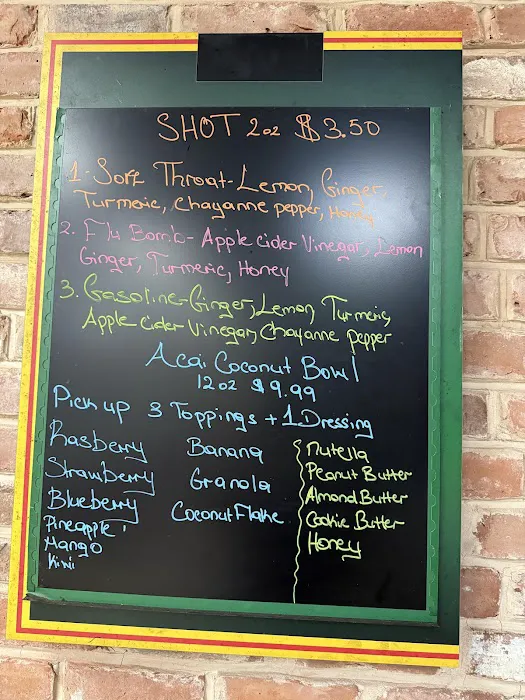 SHOT 2oz $3.50
1- Sore Throat- Lemon, Ginger,
Turmeric, Chayanne pepper, Honey
2. Flu Bomb- Apple cider Vinegar, Lemon
Ginger, Turmeric, Honey
3. Gasoline- Ginger, Lemon, Turmeric,
Apple cider Vinegar, Chayanne pepper
Acai Coconut Bowl
12oz $9.99
Pick up 3 Toppings + 1.Dressing
Rasberry
Strawberry
Blueberry
Pineapple
Mango
Kiwi
Banana
Granola
Coconut Flake
Nutella
Peanut Butter
Almond Butter
Cookie Butter
Honey